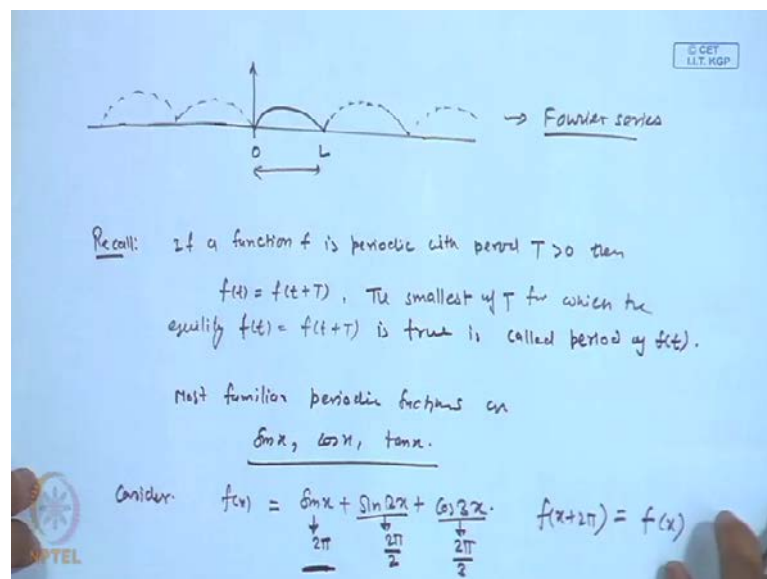 © CET
I.I.T. KGP
→ Fourier series
O L
Recall: If a function f is periodic with period T>0 then
f(t) = f(t+T). The smallest of T for which the
equality f(t) = f(t+T) is true is called period of f(t).
Most familiar periodic functions are
sinx, cosx, tanx.
Consider f(x) = sinx + sin2x + cos3x. f(x+2π) = f(x)
2π 2π/2 2π/3
NPTEL